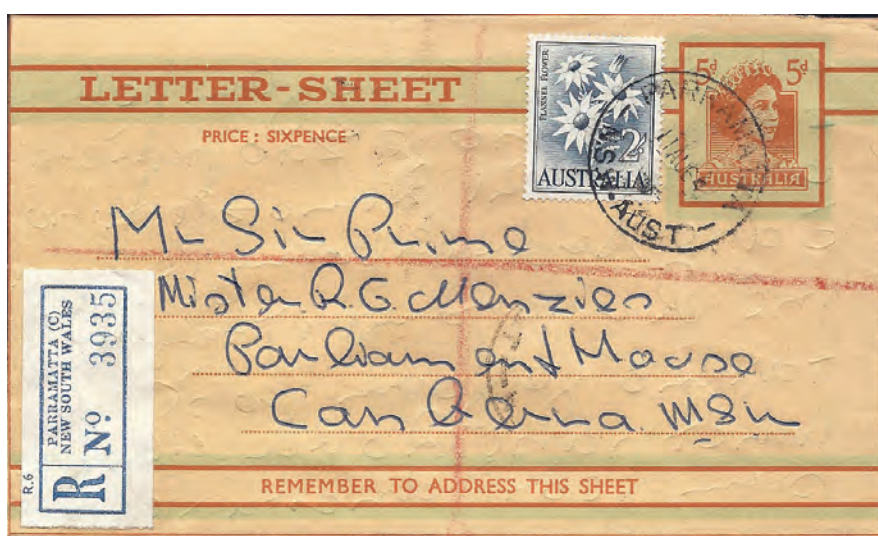 LETTER-SHEET
PRICE : SIXPENCE
FLANNEL FLOWER
2/-
AUSTRALIA
5d 5d
AUSTRALIA
PARRAMATTA
N.S.W. AUST
Mr Sir Prime
Mister R.G. Menzies
Parliament House
Canberra
PARRAMATTA (C)
NEW SOUTH WALES
R No 3935
R.6
REMEMBER TO ADDRESS THIS SHEET